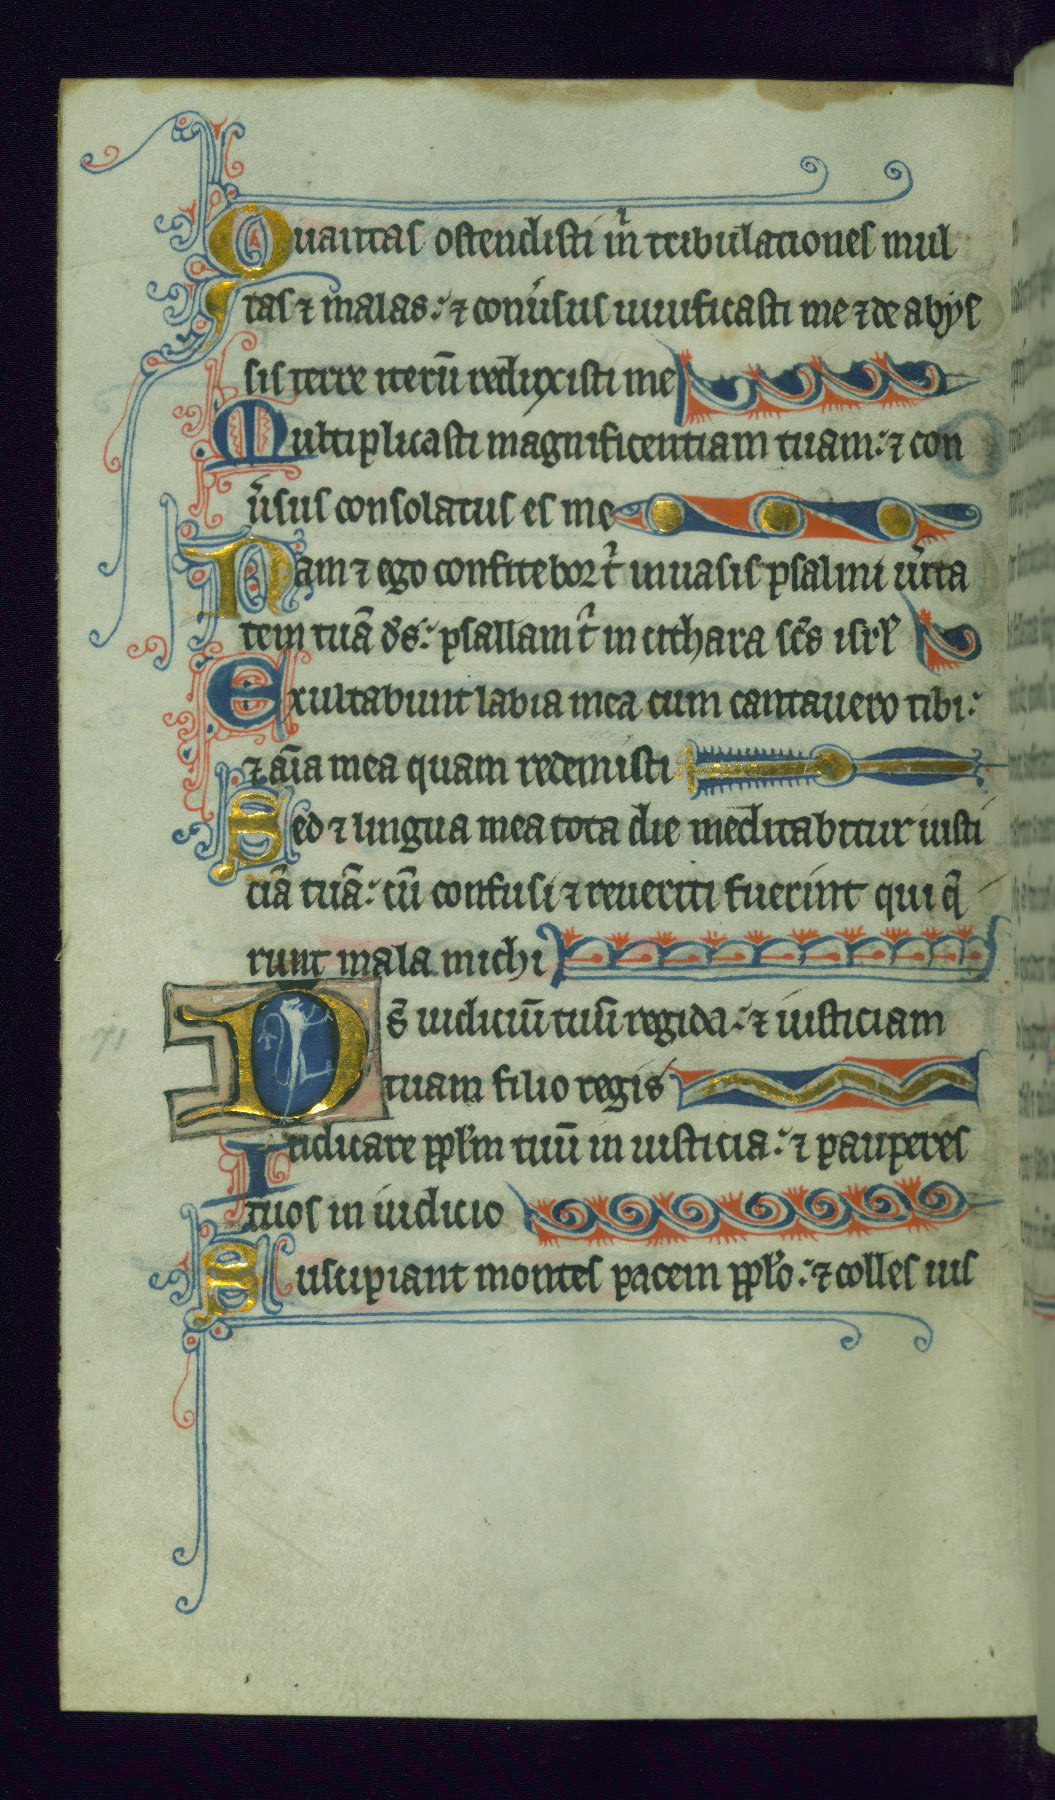 Quantas ostendisti m̃ tribulationes mul
tas ⁊ malas: ⁊ conũsus uiuificasti me ⁊ de abys
sis terre iterũ reduxisti me
Multiplicasti magnificentiam tuam: ⁊ con
ũsus consolatus es me
Nam ⁊ ego confitebor t̃ in uasis psalmi ũita
tem tuã ds̃: psallam t̃ in cithara scs̃ isrł
Exultabunt labia mea cum cantauero tibi:
⁊ aĩa mea quam redemisti
Sed ⁊ lingua mea tota die meditabitur iusti
ciã tuã: cũ confusi ⁊ reueriti fuerint qui q̃
runt mala michi
Ds̃ iudiciũ tuũ regi da: ⁊ iusticiam
71
tuam filio regis
Iudicare ppłm tuũ in iusticia: ⁊ pauperes
tuos in iudicio
Suscipiant montes pacem ppło: ⁊ colles ius